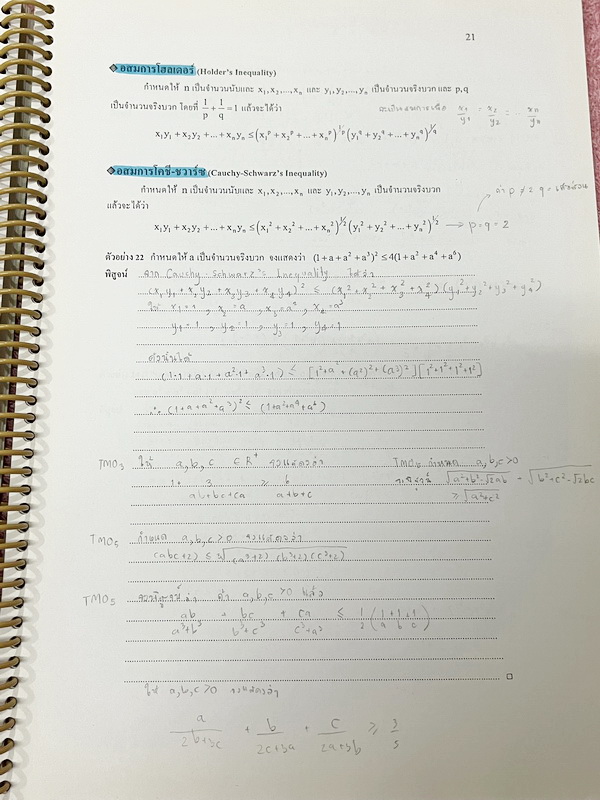 21
❖ อสมการโฮลเดอร์ (Holder's Inequality)
กำหนดให้ n เป็นจำนวนนับและ x₁,x₂,...,xₙ และ y₁,y₂,...,yₙ เป็นจำนวนจริงบวก และ p,q
เป็นจำนวนจริงบวก โดยที่ 1/p + 1/q = 1 แล้วจะได้ว่า
จะเป็นสมการเมื่อ x₁/y₁ = x₂/y₂ = xₙ/yₙ
x₁y₁ + x₂y₂ + ... + xₙyₙ ≤ (x₁ᵖ + x₂ᵖ + ... + xₙᵖ)^(1/p) (y₁^q + y₂^q + ... + yₙ^q)^(1/q)
❖ อสมการโคชี-ชวาร์ซ (Cauchy-Schwarz's Inequality)
กำหนดให้ n เป็นจำนวนนับและ x₁,x₂,...,xₙ และ y₁,y₂,...,yₙ เป็นจำนวนจริงบวก
แล้วจะได้ว่า
x₁y₁ + x₂y₂ + ... + xₙyₙ ≤ (x₁² + x₂² + ... + xₙ²)^(1/2) (y₁² + y₂² + ... + yₙ²)^(1/2) → p=q=2
ตัวอย่าง 22 กำหนดให้ a เป็นจำนวนบวก จงแสดงว่า (1+a+a²+a³)² ≤ 4(1+a²+a⁴+a⁶)
พิสูจน์ จาก Cauchy-Schwarz's Inequality ได้ว่า
(x₁y₁ + x₂y₂ + x₃y₃ + x₄y₄)² ≤ (x₁² + x₂² + x₃² + x₄²)(y₁² + y₂² + y₃² + y₄²)
ให้ x₁=1 , x₂=a , x₃=a² , x₄=a³
y₁=1 , y₂=1 , y₃=1 , y₄=1
ดังนั้นได้
∴ (1+a+a²+a³)² ≤ (1+a²+a⁴+a⁶)
TMO₃ ให้ a,b,c ∈ R⁺ จงแสดงว่า
1+ 3/(ab+bc+ca) ≥ 6/(a+b+c)
กำหนด a,b,c>0
√(a²+b²-√2ab) + √(b²+c²-√2bc)
≥ √(a²+c²)
TMO₅ กำหนด a,b,c>0 จงแสดงว่า
(abc+2) ≤ ³√((a³+2)(b³+2)(c³+2))
TMO₅ จงพิสูจน์ว่า ถ้า a,b,c >0 แล้ว
ab/(a³+b³) + bc/(b³+c³) + ca/(c³+a³) ≤ 1/2 (1/a + 1/b + 1/c)
ให้ a,b,c>0 จงแสดงว่า
a/(2b+3c) + b/(2c+3a) + c/(2a+3b) ≥ 3/5